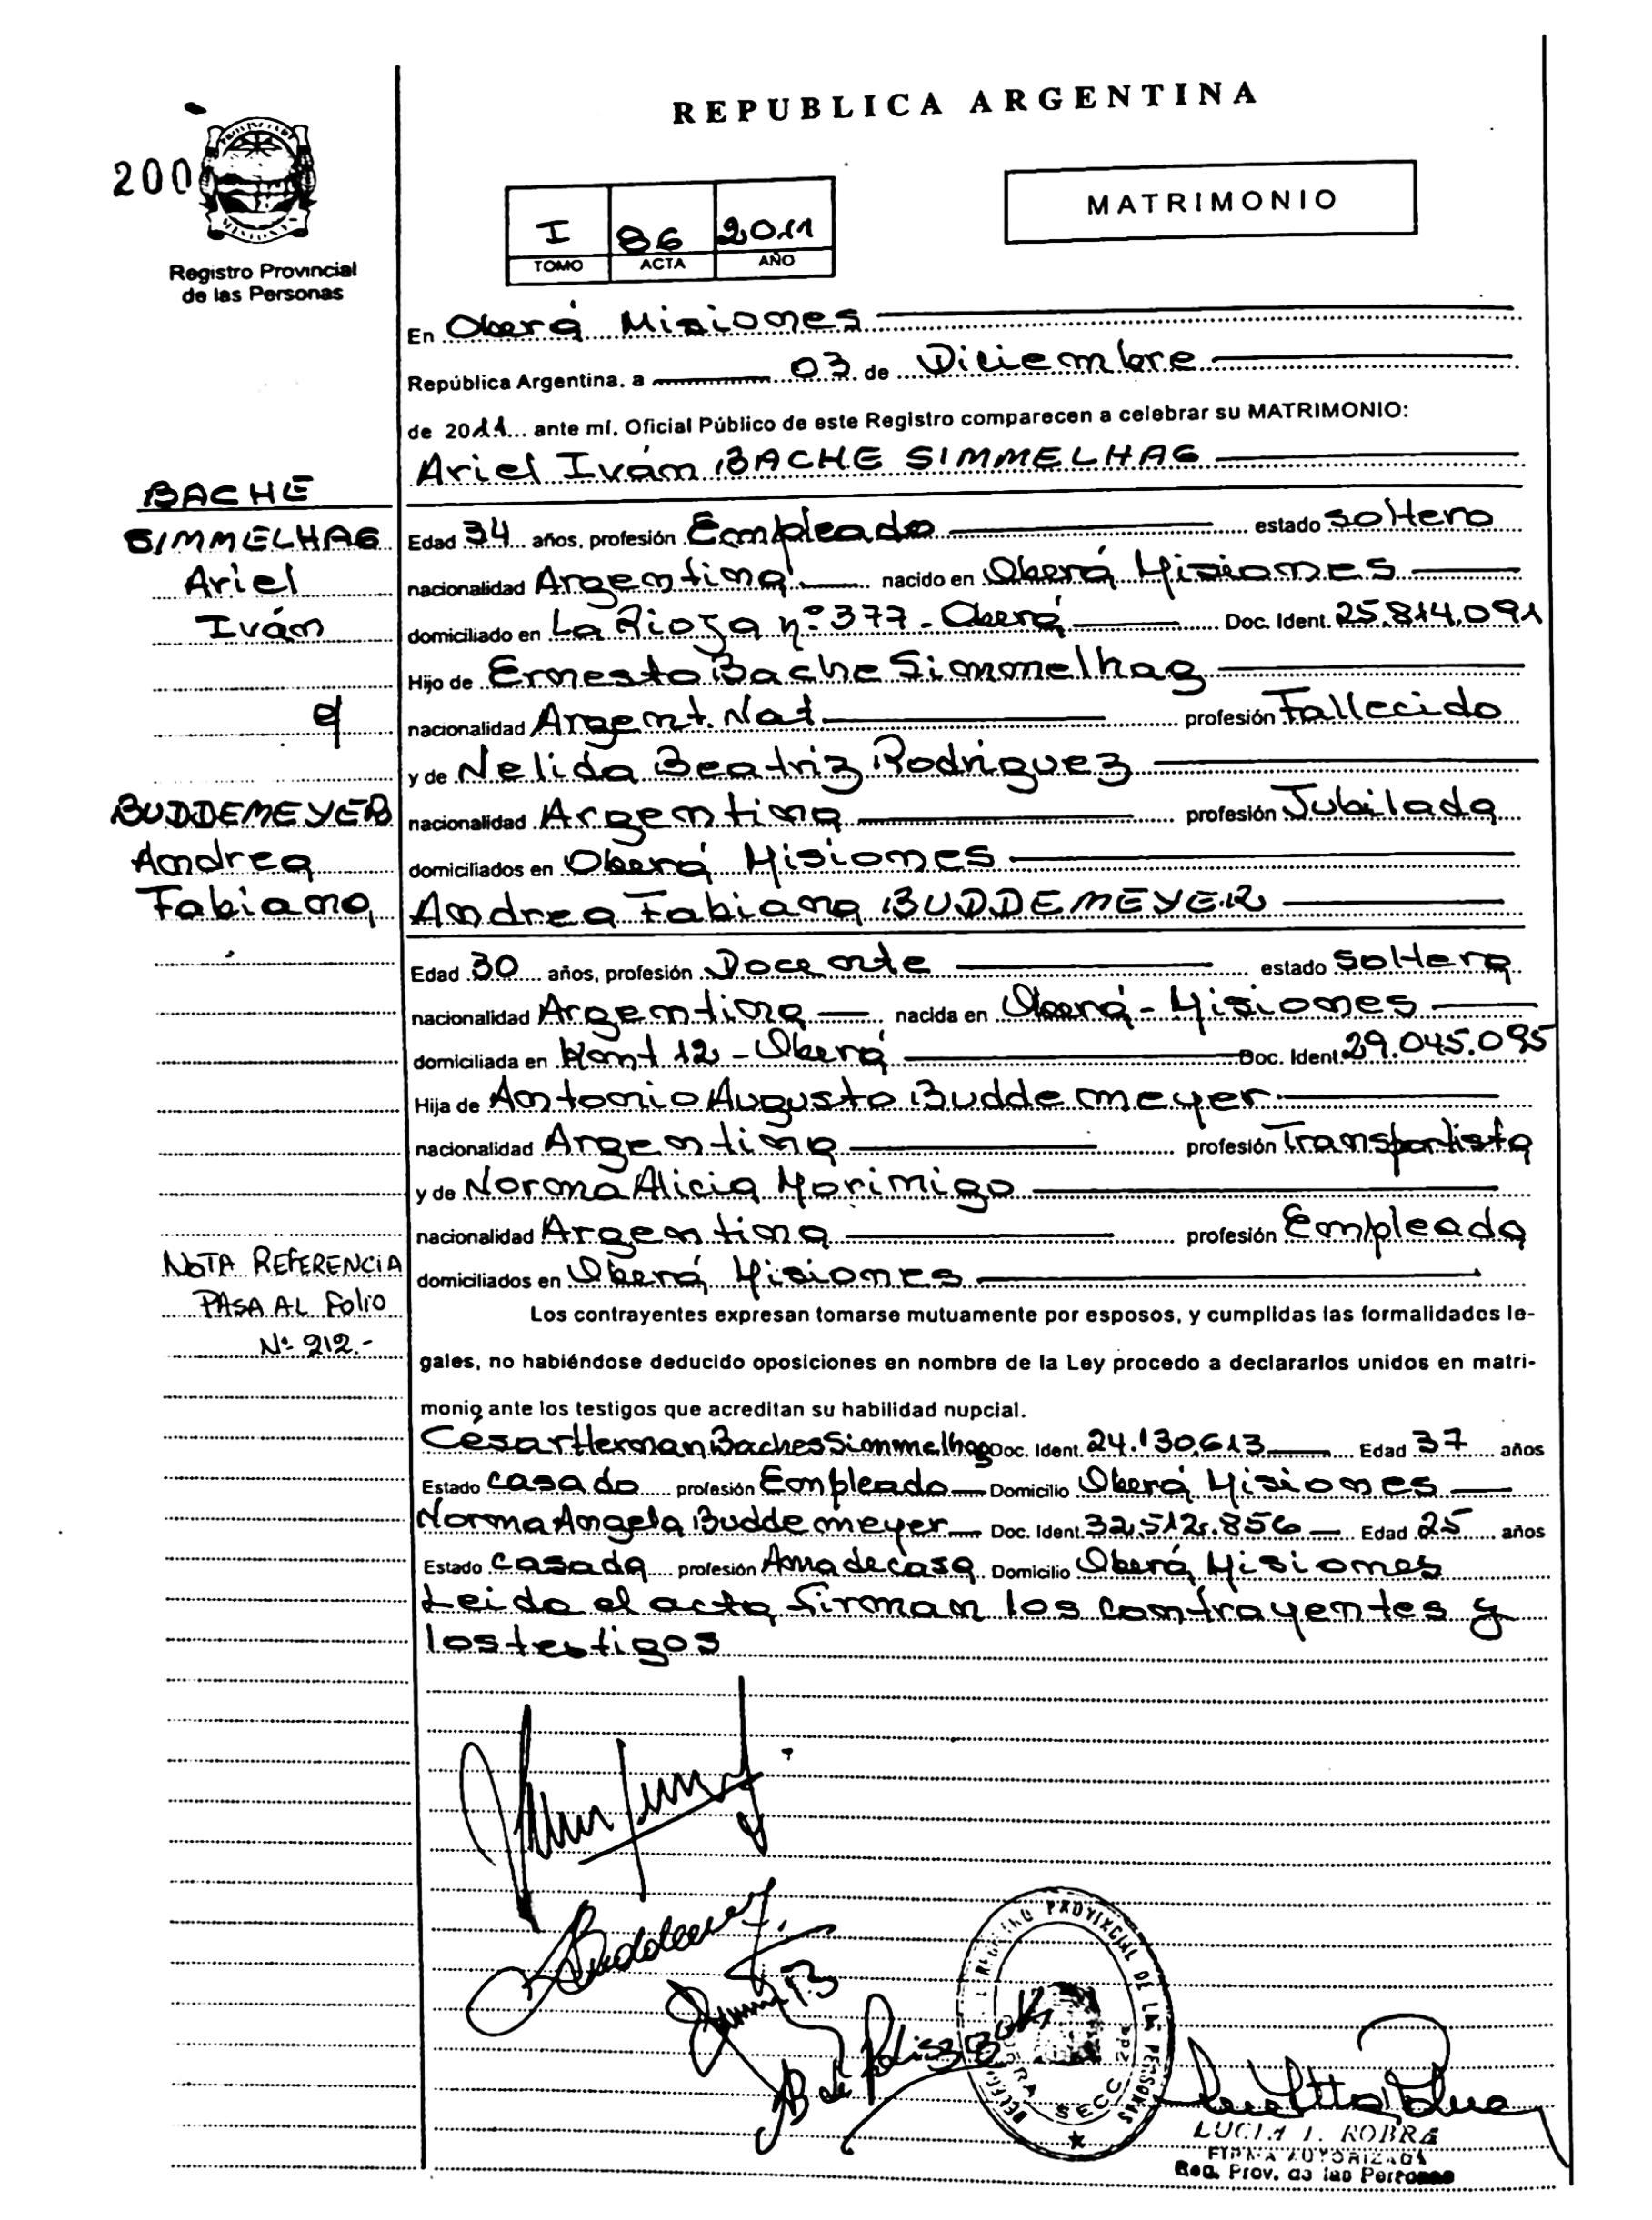 REPUBLICA ARGENTINA
200
MATRIMONIO
I 86 2011
TOMO ACTA AÑO
Registro Provincial
de las Personas
En Oberá Misiones
República Argentina, a 03 de Diciembre
de 2011 ante mí, Oficial Público de este Registro comparecen a celebrar su MATRIMONIO:
Ariel Iván BACHE SIMMELHAG
BACHE
SIMMELHAG
Ariel
Iván
Edad 34 años, profesión Empleado estado soltero
nacionalidad Argentina nacido en Oberá Misiones
domiciliado en La Rioja nº 377 - Oberá Doc. Ident. 25.814.091
Hijo de Ernesto Bache Simmelhag
nacionalidad Argent. Nat profesión Fallecido
y de Nelida Beatriz Rodriguez
nacionalidad Argentina profesión Jubilada
domiciliados en Oberá Misiones
BUDDEMEYER
Andrea
Fabiana
Andrea Fabiana BUDDEMEYER
Edad 30 años, profesión Docente estado soltera
nacionalidad Argentina nacida en Oberá - Misiones
domiciliada en 12 - Oberá Doc. Ident. 29.045.095
Hija de Antonio Augusto Buddemeyer
nacionalidad Argentina profesión Transportista
y de Norma Alicia Morinigo
nacionalidad Argentina profesión Empleada
domiciliados en Oberá Misiones
NOTA REFERENCIA
PASA AL Folio
Nº 212.-
Los contrayentes expresan tomarse mutuamente por esposos, y cumplidas las formalidades le-
gales, no habiéndose deducido oposiciones en nombre de la Ley procedo a declararlos unidos en matri-
monio ante los testigos que acreditan su habilidad nupcial.
César Hernan Baches Simmelhag Doc. Ident. 24.130.613 Edad 37 años
Estado casado profesión Empleado Domicilio Oberá Misiones
Norma Angela Buddemeyer Doc. Ident. 32.512.856 Edad 25 años
Estado casada profesión Ama de casa Domicilio Oberá Misiones
Leida el acta firman los contrayentes y
los testigos
REGISTRO PROVINCIAL DE LAS PERSONAS
SECC.
LUCIA I. ROBRA
FIRMA AUTORIZADA
Reg. Prov. de las Personas